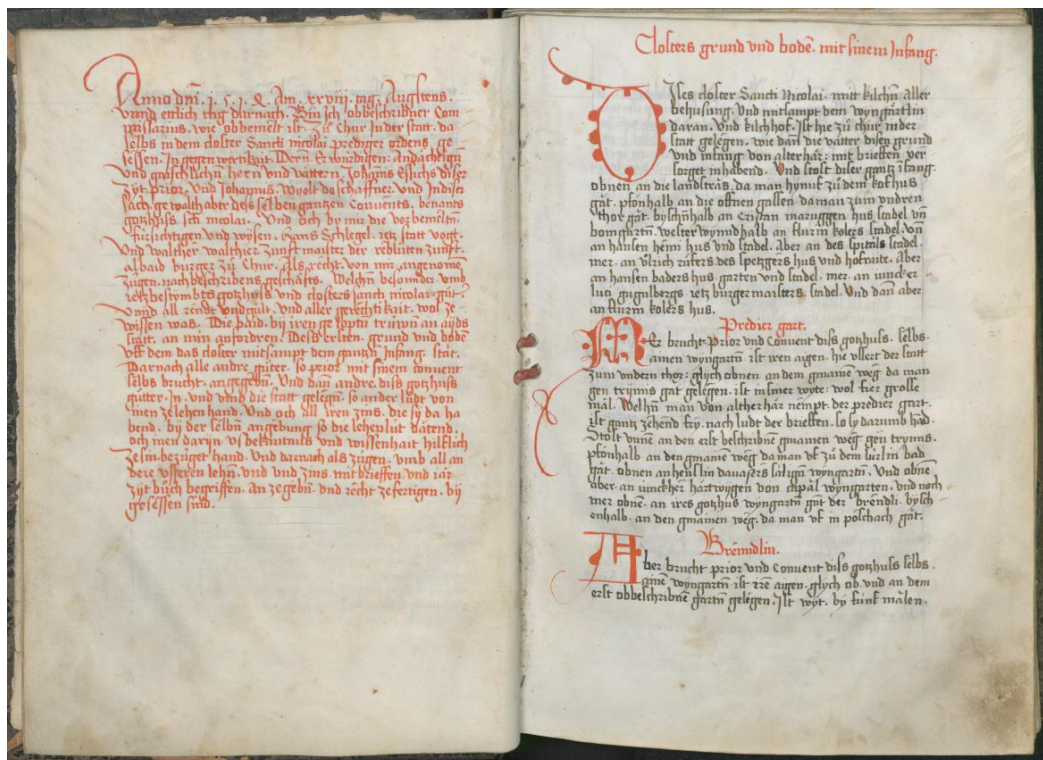 Anno dm̄. 1. 5. 1. 8. Am. xxviii. tag. Augstens.
vnnd ettlich tag darnach. Bin ich obbeschribner Com
missarius. wie obbemelt ist. Zů Chur Jn der statt. da
selbs in dem closter Sancti nicolai prediger ordens. ge
sessen. Jn gegenwürtikait. Dern̄ Erwirdigen: Andächtign̄
vnd gaistlichn̄ hern̄ vnd vättern. Johans Eschis diser
zyt prior. vnd Johannis. schaffner. vnd
sach. gewalthaber deß selben gantzen Conuents. benants
gotzhuss scti nicolai. Vnd och by mir die vorbemeltn̄
fürsichtigen vnd wysen. Hans Schlegel. ietz statt vogt.
Vnd walther walthier. Zunfft maister der reblüten zunfft.
al baid burger zů Chur. Als recht. von mir angenomē
zügen. nachbeschribens geschäffts. Welchn̄ besonnder vmb
ietzbestembts gotzhuss vnd closters sancti nicolai gůt.
vnnd all rendt vnd gült. vnd aller gerechtikait. wol ze
wissen was. Die baid. bij iren gelopten trüwn̄ an aÿds
statt. an min anfordren. Deß ersten. grund vnd bodē
vff dem das closter mitsampt dem gantzn̄ Jnfang. stat.
Darnach alle andre gůter. so prior mit sinem conuent
selbs brucht. angegebn̄. Vnd dan̄ andre. diss gotzhuss
gůtter. Jn. vnd vmb die statt gelegn̄. so ander lüdt von
inen ze lehen hand. Vnd och all iren zins. die sy da ha
bend. bij der selbn̄ angebung so die lehenlüt dātend.
och inen darjn vß bekantnus vnd wissenhait hilflich
ze sin. bezüget hand. Vnd darnach als zügen. vmb all an
dere vsseren lehn̄. vnd vnd zins mit brieffen. vnd iar
zijt bůch begriffen. an zegebn̄. vnd recht zefertigen. bij
gesessen sind.
Closters grund vnd bodē. mit sinem Jnfang.
Jses closter Sancti Nicolai. mit kilchn̄ aller
behusung. Vnd mitsampt dem wyngärtlin
daran. Vnd kilchhof. Jst hie zů chur. in der
statt gelegen. wie dan̄ die vätter disen grund
vnd infang von alter här: mit brieffen ver
sorget inhabend. Vnd stost diser gantz ifang.
obnen an die landstras. da man hÿmit zů dem kof hus
gat. pfonhalb an die offnen gassen. da man zům vndren
thor gat. byschn̄halb an Cristan maruggen hus stadel vn̄
bomgartn̄. wester wynndhalb an flurin kolers stadel. von
an hansen hemi hus vnd stadel. Aber an des spitals stadel.
mer. an Vlrich rüters des spetzgers hus vnd hofraite. Aber
an hansen baders hus garten vnd stadel. mer. an iunckher
luci gugulbergs ietz burgermaisters. stadel. Vnd dan̄ aber
an flurin kolers hus.
Predier gart.
Er brucht prior vnd Conuent diss gotzhuss. selbs.
ainen wyngartn̄. ist iren aigen. hie vssert der statt
zum vndern thor: glych obnen an dem gmainē weg. da man
gen trÿmis gat gelegen. ist in siner wyte: wol fier grosse
mal. Welhn̄ man von altherhär nempt. der predier gart.
ist gantz zehend fry. nach ludt der brieffen. so sy darumb hād.
Stost vnnē an den erst beschribnē gmainen weg gen trÿmis.
pfonhalb an den gmainē weg. da man vff zů dem bad
gat. obnen an henslin dauasers säligen wyngartn̄. Vnd obnē
aber. an iunckher hartwygen von capäl wyngarten. vnd noch
mer obnē. an ires gotzhus wyngartn̄ gnt der brendli. bysch
enhalb. an den gmainen weg. da man vff in polschach gat.
Brenndlin.
Aber brucht prior vnd Conuent diss gotzhuss selbs.
ainē wyngartn̄ ist irē aigen. glych ob. vnd an dem
erst obbeschribnē gartn̄ gelegen. Jst wyt. by fünf mälen.